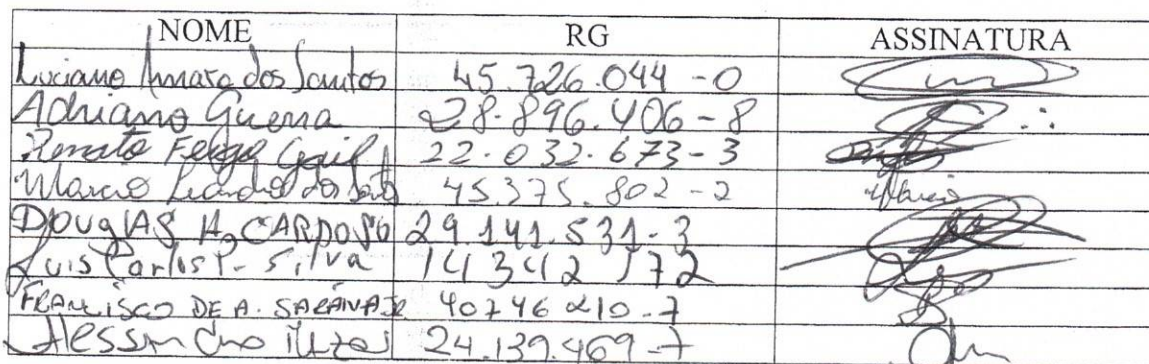 NOME RG ASSINATURA
Luciano Amaro dos Santos 45.726.044-0
Adriano Guerra 28.896.406-8
Renato Felipe 22.032.673-3
Marcio Leandro dos Santos 45.375.802-2 Marcio
DOUglAS H. CARDOSO 29.141.531-3
Luis Carlos P. Silva 14342172
FRANCISCO DE A. 40746210-7
Alessandro 24.139.469-7